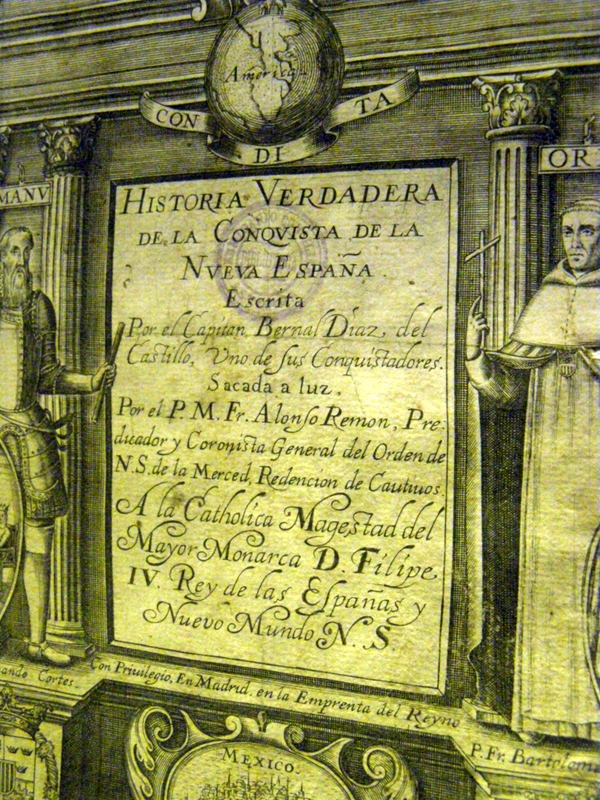 America
CON DI TA
MANV
OR
HISTORIA VERDADERA
DE LA CONQVISTA DE LA
NVEVA ESPAÑA
Escrita
Por el Capitan, Bernal Diaz, del
Castillo, Vno de sus Conquistadores.
Sacada a luz,
Por el P. M. Fr. Alonso Remon, Pre-
dicador y Coronista General del Orden de
N. S. de la Merced, Redencion de Cautiuos.
A la Catholica Magestad del
Mayor Monarca D. Filipe
IV. Rey de las Españas y
Nuevo Mundo N. S.
nando Cortes
Con Privilegio, En Madrid, en la Emprenta del Reyno
P. Fr. Bartolome
MEXICO.